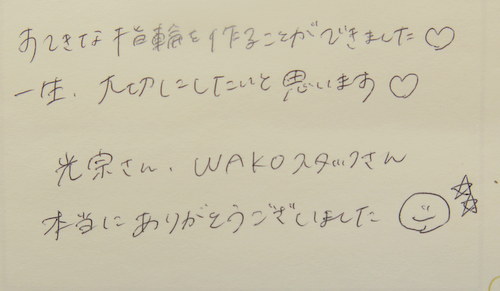 すてきな指輪を作ることができました♡
一生、大切にしたいと思います♡
光宗さん、WAKOスタッフさん
本当にありがとうございました